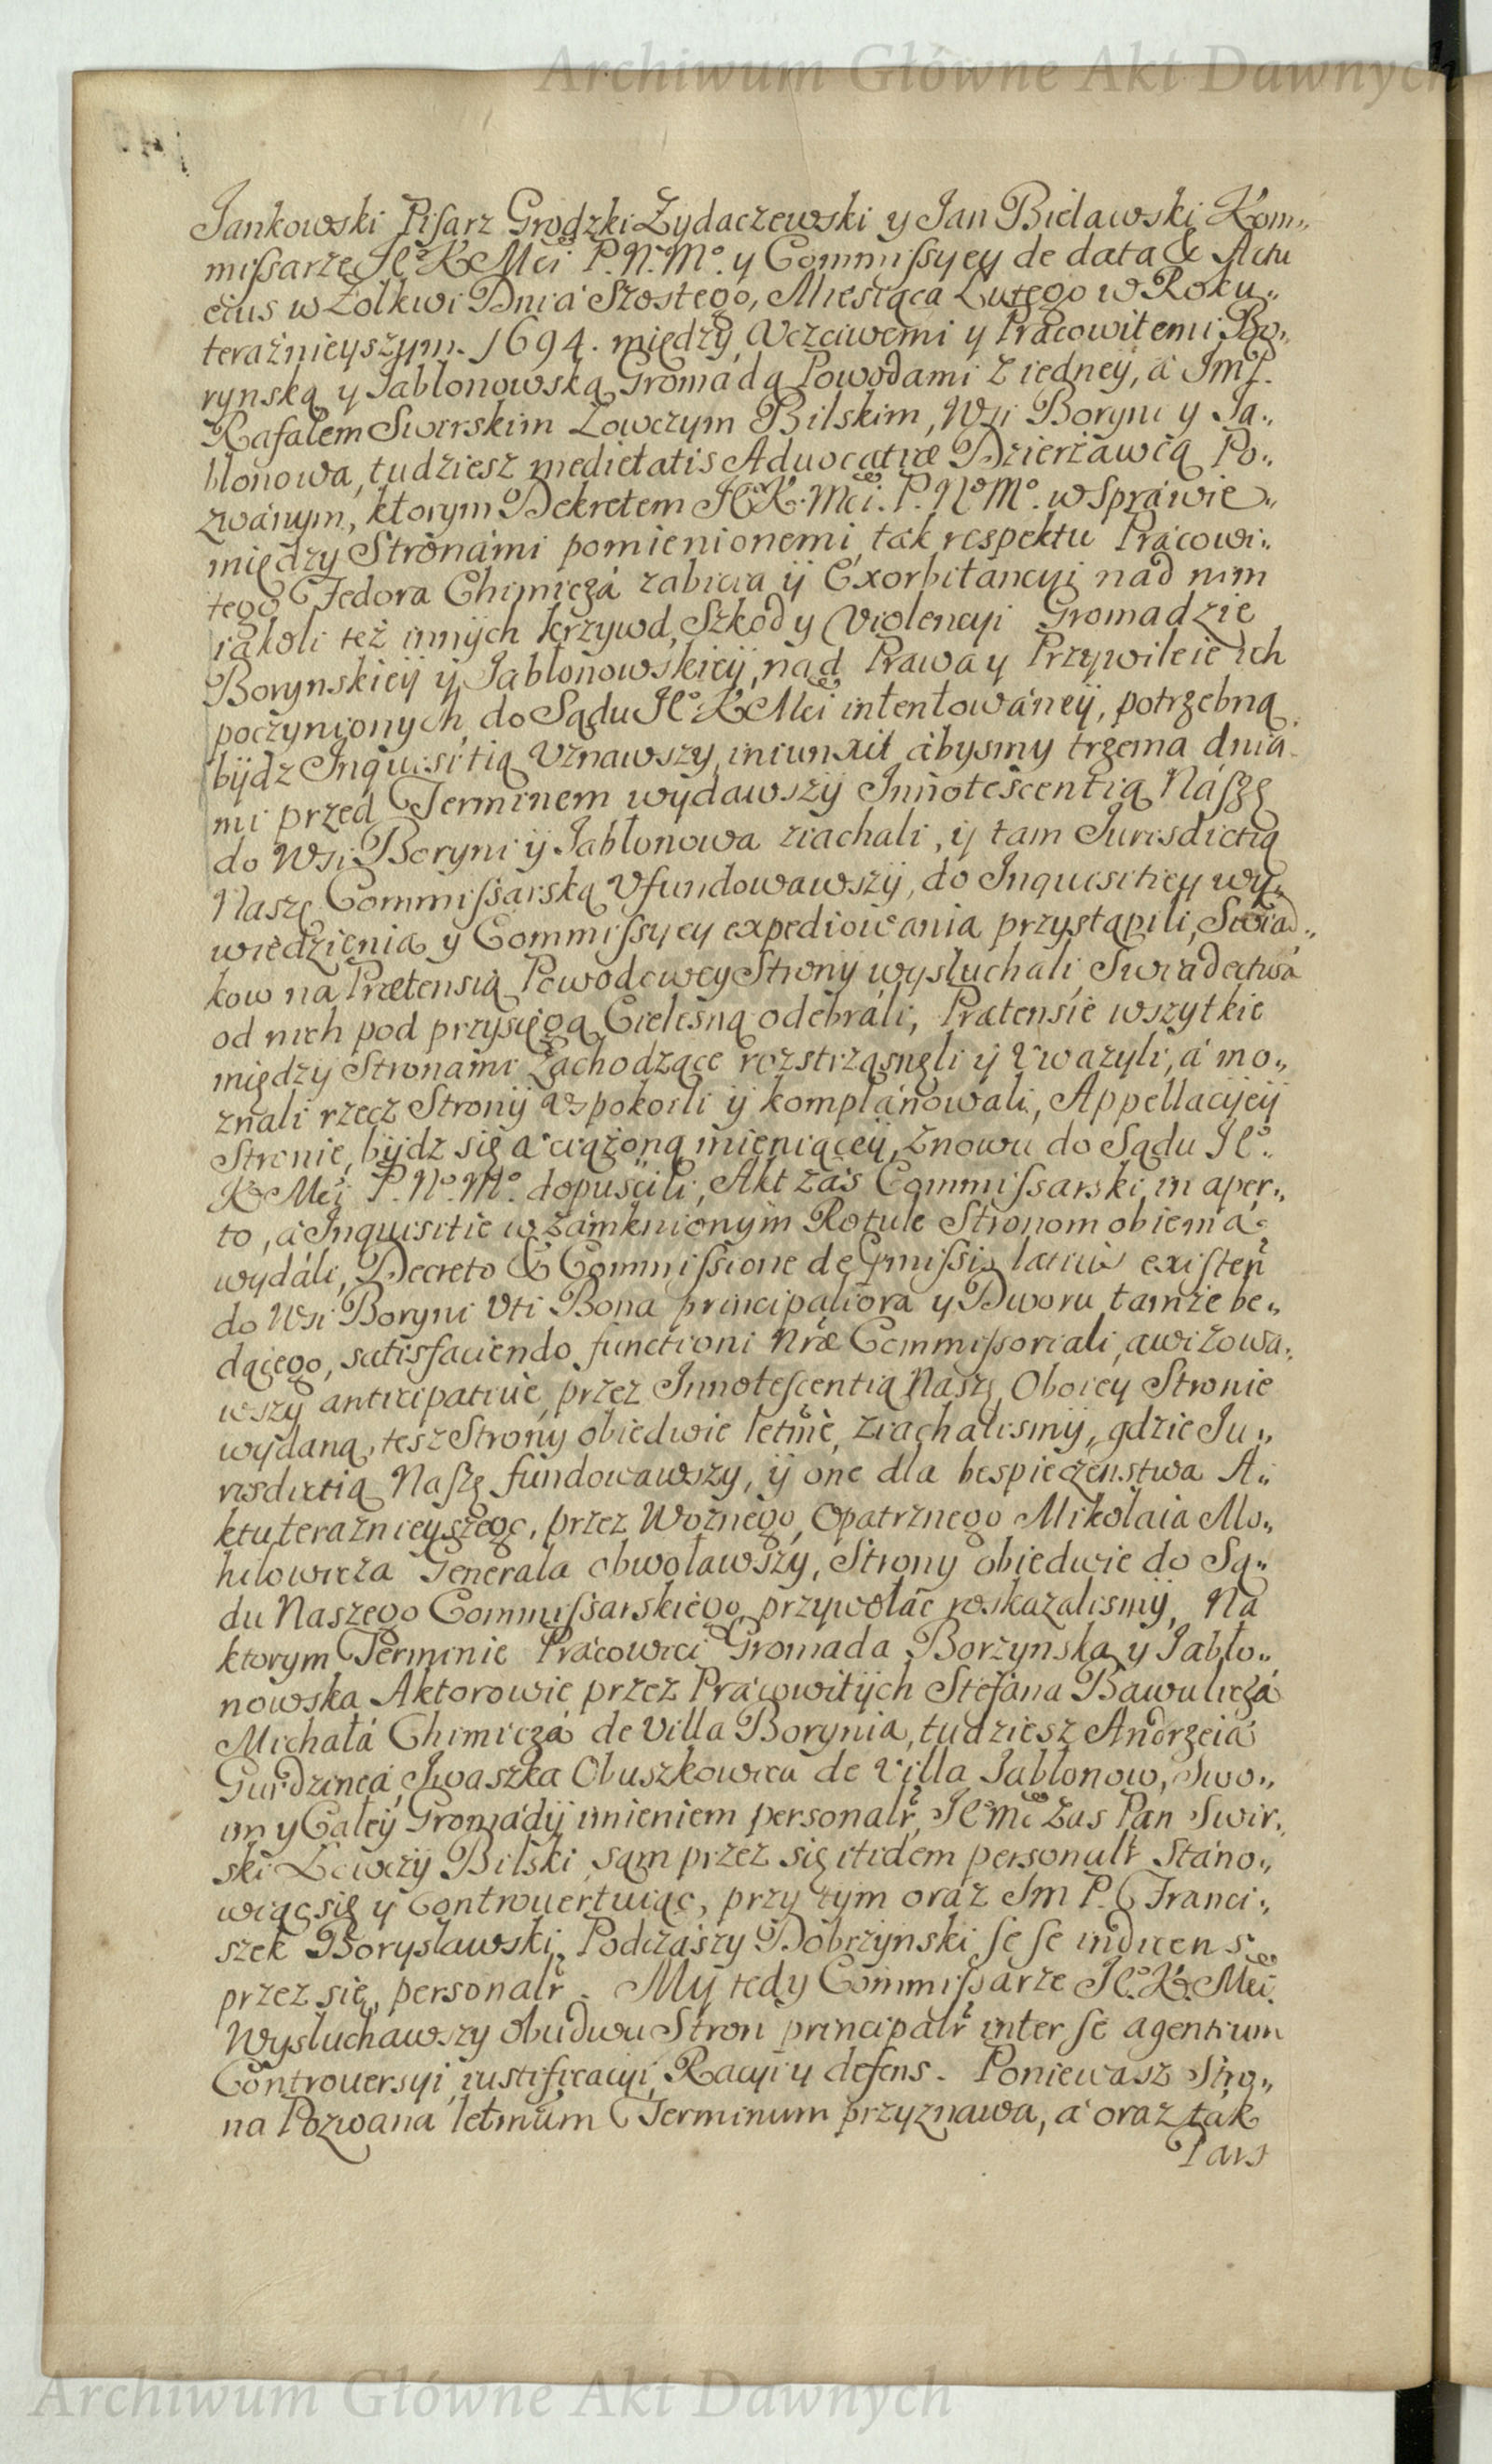 Archiwum Główne Akt Dawnych
Jankowski Pisarz Grodzki Zydaczewski y Jan Bielawski Kom„
missarze Je° K Mci P. N. M°. y Commissyey de data & Actu
eius w Zolkwi Dnia Szostego, Miesiąca Lutego w Roku„
teraznieyszym. 1694. między Vczciwemi y Pracowitemi Bo„
rynską y Jabłonowską Gromadą Powodami z iedney, á JmP.
Rafałem Swirskim Łowczym Bilskim, Wsi Boryni y Ja„
blonowa, tudziesz medietatis Aduocatiæ Dzierżawcą Po„
zwánym, ktorym Dekretem Je° K. Mci. P. N° M°. w Spráwie„
między Stronámi pomienionemi, ták respektu Prácowi„
tego Fedora Chimiczá zabicia ÿ Exorbitáncyi nad nim
iákoli też innych krzywd, Szkod y Violencyi Gromadzie
Borynskieÿ ÿ Jabłonowskieÿ, nád Prawa y Przywileie ich
poczynionych, do Sądu Je° K Mci intentowáneÿ, potrzebną
bÿdz Inquisitią Vznawszy, iniunxit ábysmy trzema dniá
mi przed Terminem wydawszÿ Innotescentią Nászę
do Wsi Boryni ÿ Jabłonowa ziachali, ÿ tam Jurisdictią
Naszę Commissarską Vfundowawszÿ, do Inquisitiey wy„
wiedzienia y Commissyey expediowania przystąpili, Swiad„
kow na Prætensią Powodowey Strony wysłuchali, Swiadectwá
od nich pod przysięgą Cielesną odebráli, Prætensie wszytkie
między Stronámi Záchodzące rozstrząsnęli ÿ Vwazyli, á mo„
znali rzecz Stronÿ Vspokoili ÿ komplánowali, Appellacÿeÿ
Stronie, bÿdz się áciążoną mieniąceÿ, znowu do Sądu Je°„
K Mci P. N°. M°. dopuścili, Akt zaś Commissarski in aper„
to, á Inquisitie w zámknionym Rotule Stronom obiemá
wydáli, Decreto & Commissione de præmissis latius existen
do Wsi Boryni Vti Bona principaliora y Dworu tamże be„
dącego, satisfaciendo functioni nræ Commissoriali, awizowa„
wszy anticipatiue, przez Innotescentią Naszę Oboiey Stronie
wydaną, tesz Strony obiedwie letme, ziachalismÿ, gdzie Ju„
risdictią Naszę fundowawszy, ÿ one dla bespieczenstwa A„
ktu teraznieyszego, przez Woznego, Opatrznego Mikołaia Mo„
hilowicza Generała obwoławszy, Strony obiedwie do Są„
du Naszego Commissarskiego przywołác roskazalismÿ, Na
ktorym Terminie Prácowici Gromada Borzynska y Jabło„
nowska Aktorowie przez Prácowitÿch Stefána Bawuliczá
Michałá Chimiczá de Villa Borynia, tudziesz Andrzeiá
Gurdzincá, Jwaszka Obuszkowica de Villa Jabłonow, Swo„
im y Całey Gromádÿ imieniem personalr, Je° Mc zas Pan Swir„
ski Łowczÿ Bilski, sam przez się itidem personalr Stáno„
wiąc się ÿ Controuertuiąc, przy tym oráz Jm P. Franci„
szek Borysławski, Podczászy Dobrzynski se se indicens
przez się, personalr. Mÿ tedy Commissarze Je°. K. Mci.
Wysłuchawszy obudwu Stron principalr inter se agentium
Controuersyi, iustificacyi, Racyi y defens. Poniewasz Stro„
na Pozwana letmum Terminum przyznawa, á oraz tak
Pars
Archiwum Główne Akt Dawnych